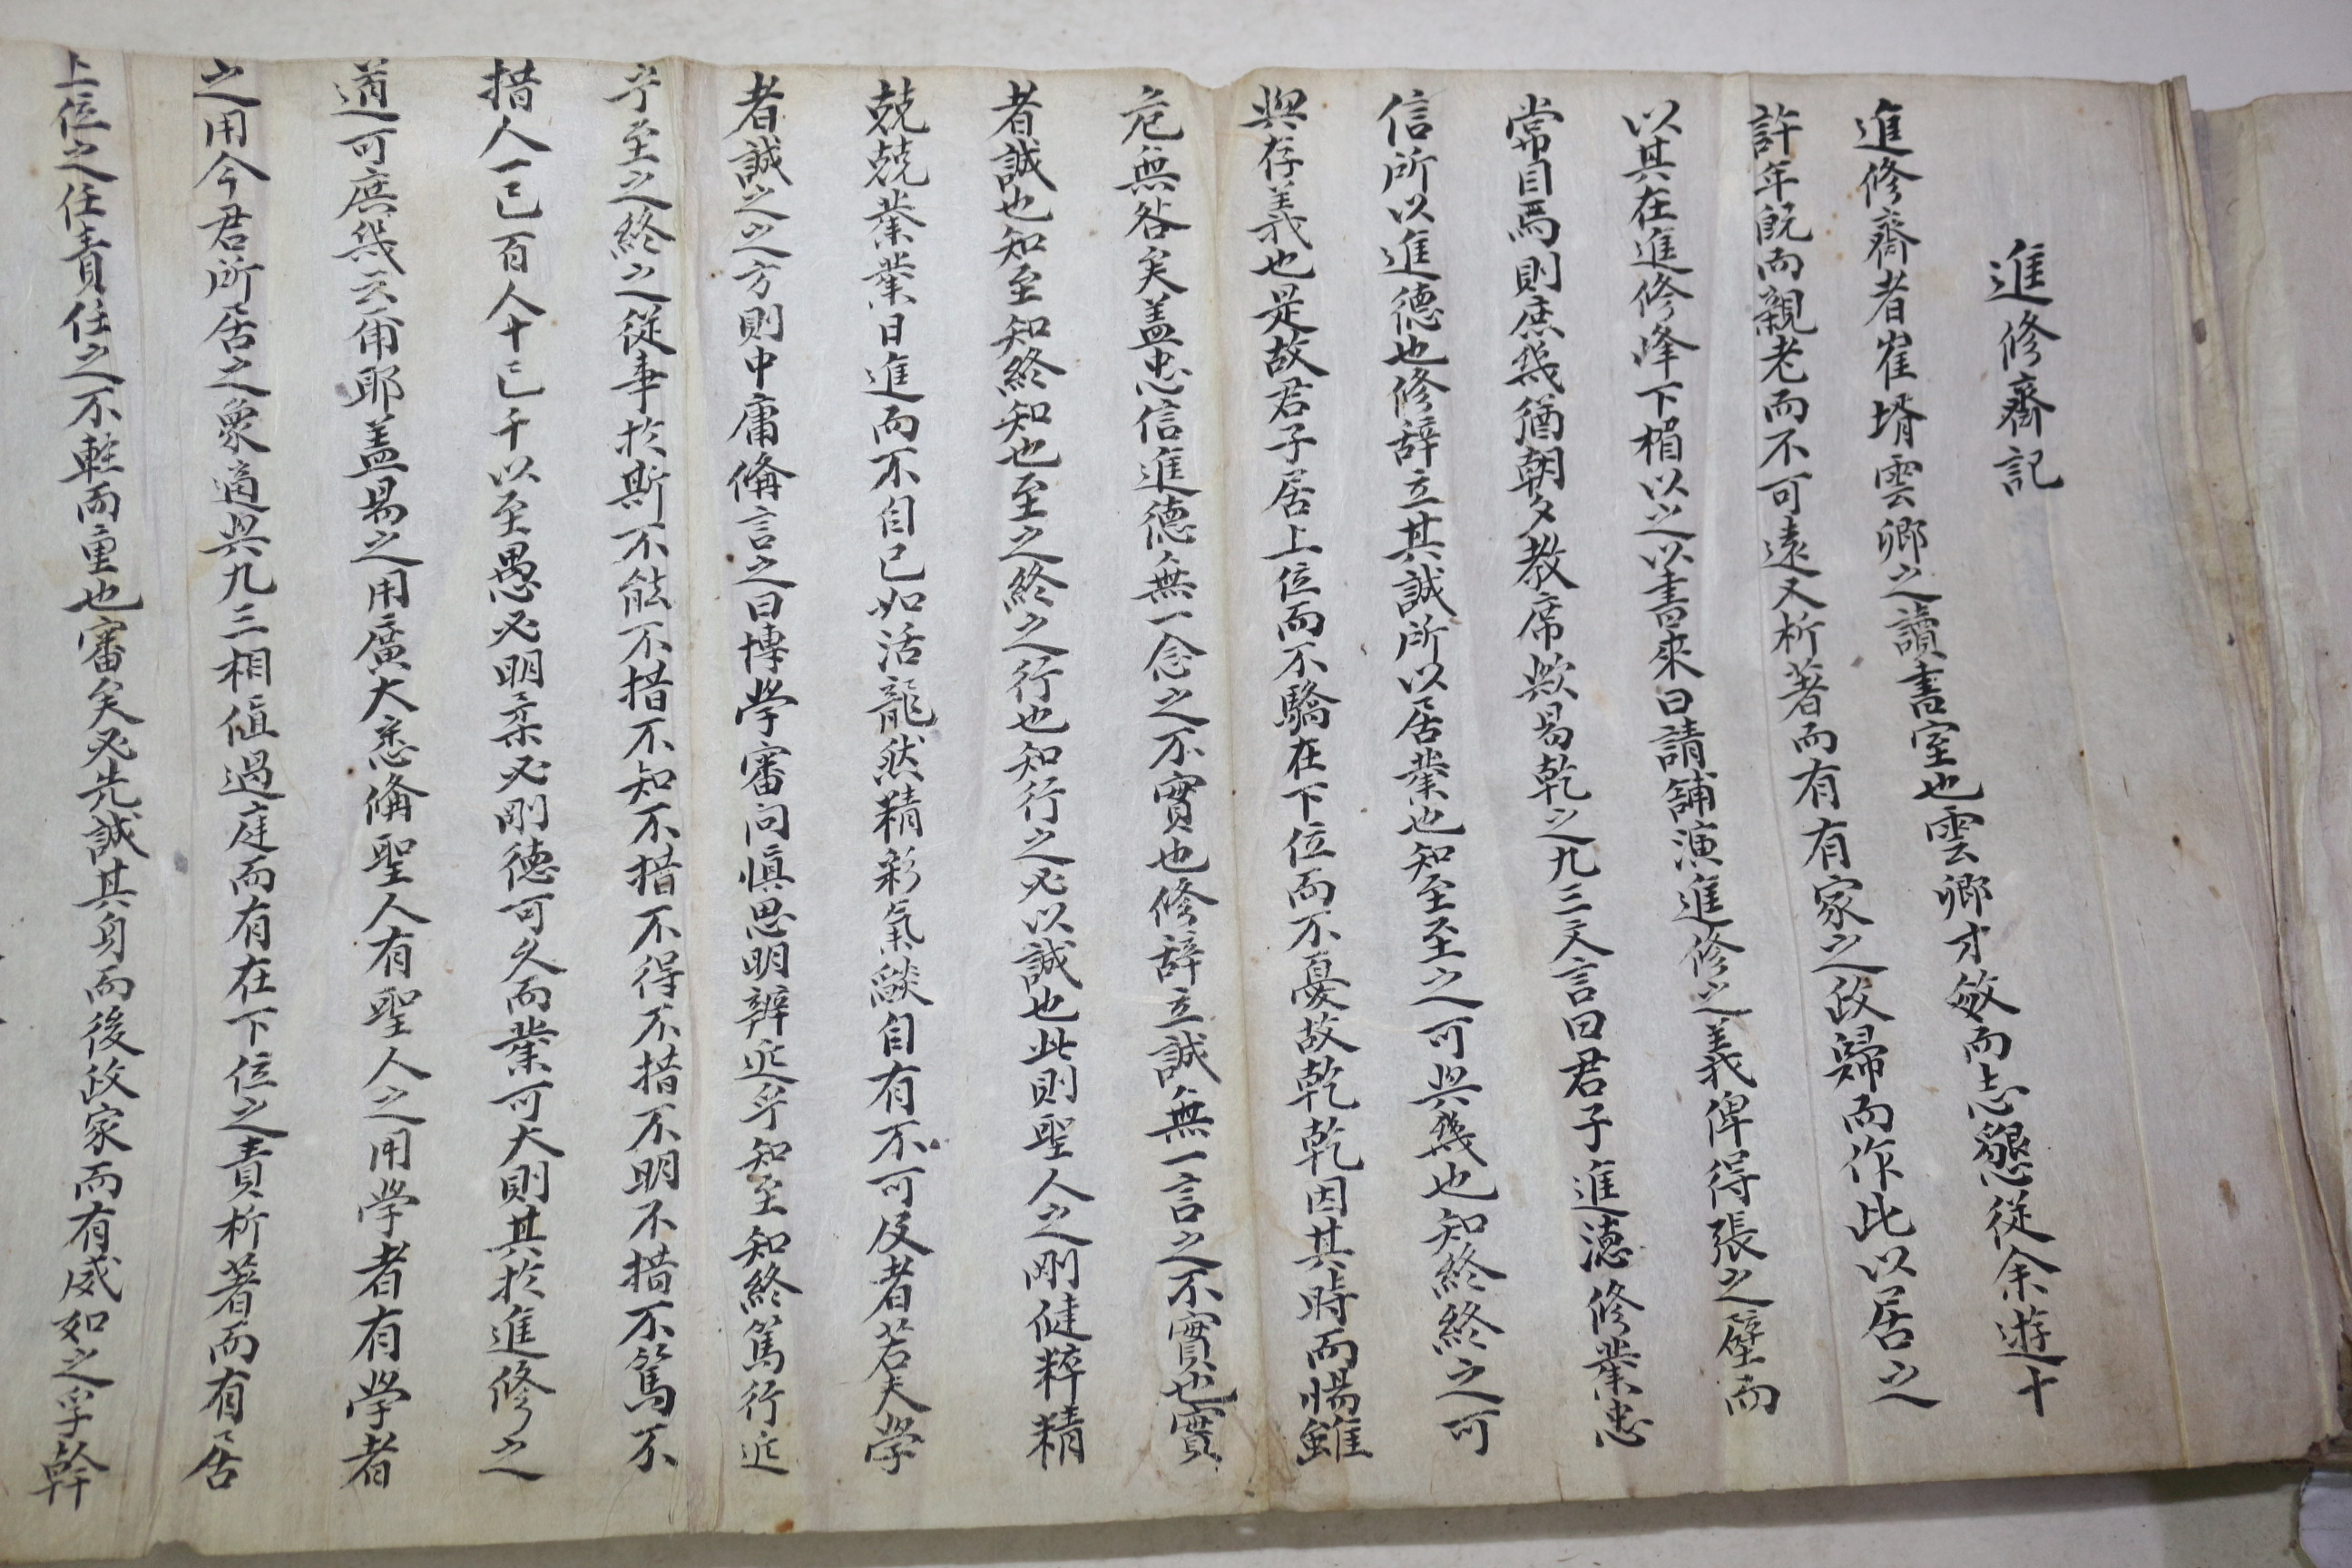 進修齋記
進修齋者崔壻雲卿之讀書室也雲卿才敏而志懇從余遊十
許年旣而親老而不可遠又析著而有有家之政歸而作此以居之
以其在進修峰下楣以之以書來曰請舖演進修之義俾得張之壁而
常目焉則庶幾猶朝夕教席歟易乾之九三文言曰君子進德修業忠
信所以進德也修辞立其誠所以居業也知至至之可與幾也知終終之可
與存義也是故君子居上位而不驕在下位而不憂故乾乾因其時而惕雖
危無咎矣盖忠信進德無一念之不實也修辞立誠無一言之不實也實
者誠也知至知終知也至之終之行也知行之必以誠也此則聖人之剛健粹精
兢兢業業日進而不自已如活龍然精彩氣燄自有不可及者若夫學
者誠之之方則中庸俻言之曰博學審问愼思明辨近乎知至知終篤行近
乎至之終之從事於斯不能不措不知不措不得不措不明不措不篤不
措人一己百人十己千以至愚必明柔必剛德可久而業可大則其於進修之
道可庶幾云甭耶盖易之用廣大悉俻聖人有聖人之用學者有學者
之用今君所居之象適與九三相值過庭而有在下位之責析著而有居
上位之任責任之不輕而重也審矣必先誠其身而後政家而有威如之孚幹